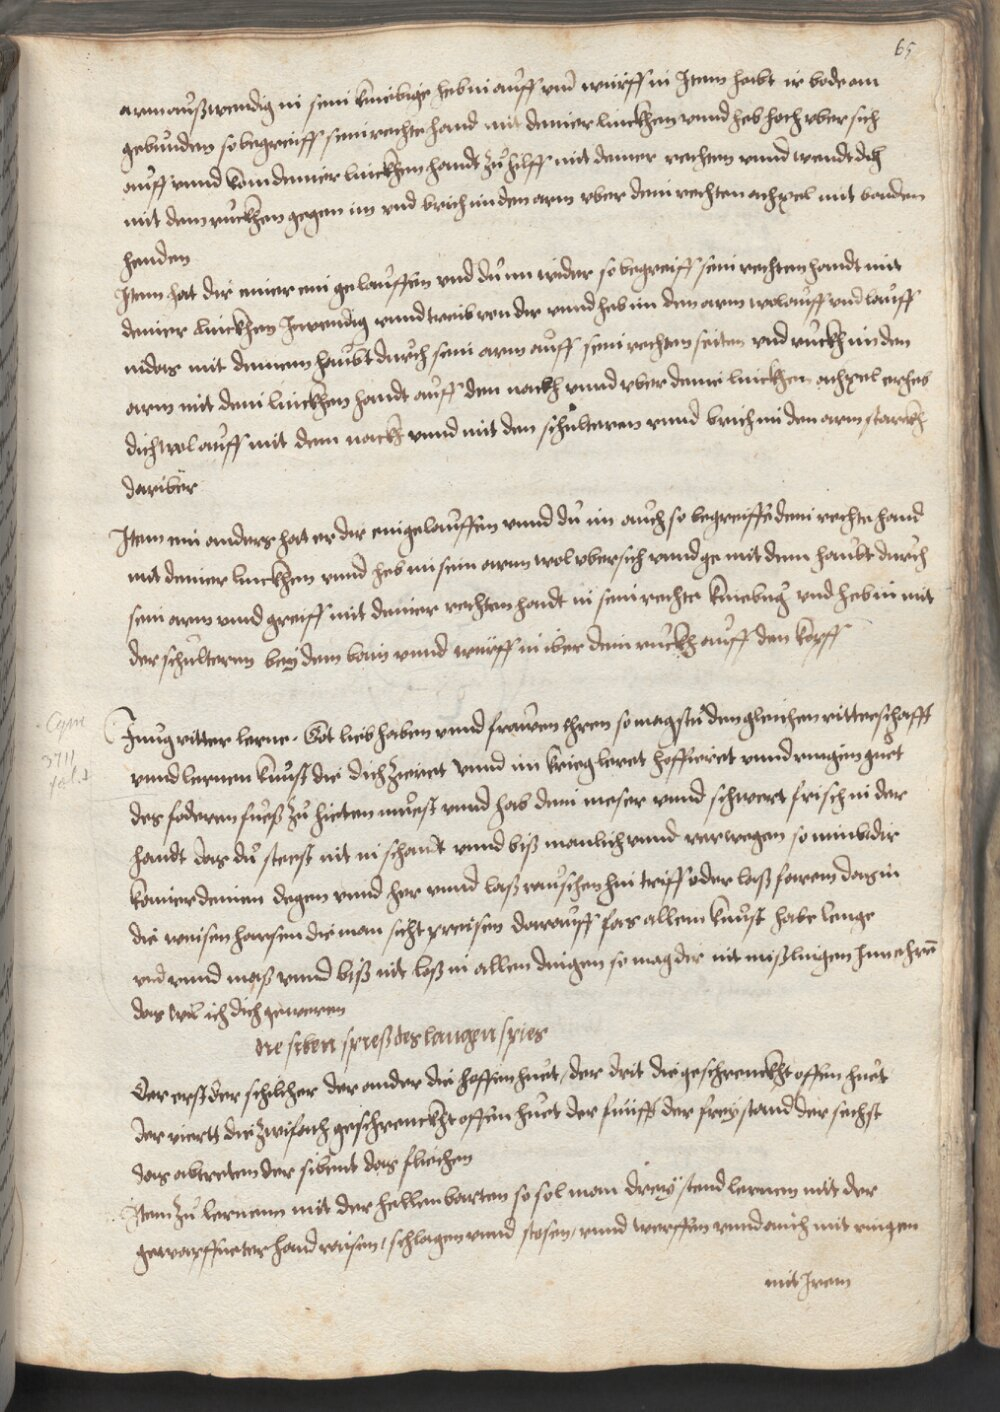 65
arm außwendig in sein kniebüge heb in auff vnd würff in Item habt ir bede am
gebunden so begreiff sein rechte hand mit deiner linckhen vnnd heb hoch vber sich
auff vnnd kom deiner linckhen handt zu hilff mit deiner rechten vnnd wendt dich
mit dem ruckhen gegen im vnd brich im den arm vber dein rechten achxel mit banden
henden
Item hat dir einer ein geloffen vnd du im wider so begreiff sein rechten handt mit
deiner linckhen Inwendig vnnd treib von dir vnnd heb im den arm wol auff vnd lauff
niders mit deinem haubt durch sein arm auff sein rechten seiten vnd ruckh im den
arm mit dein linckhen handt auff den nackh vnnd vber deine linckhen achxel erheb
dich wol auff mit dem nackh vnnd mit den schulteren vnnd brich im den arm starckh
dariber
Item ein anders hat er dir eingelauffen vnnd du im auch so begreiffe dein rechte hand
mit deiner linckhen vnnd heb im sein arm wol vber sich vnnd ge mit dem haubt durch
sein arm vnnd greiff mit deiner rechten handt in sein rechte kniebug vnd heb in mit
der schulteren bey dem bain vnnd würff in iber dein ruckh auff den kopff
Cgm
3711
fol.
Jung ritter lerne Got lieb haben vnnd frawen ehren so magstu den gleichen ritterschafft
vnnd lernen kunst die dich zieret vnnd im krieg leret hoffieret vnnd ringen guet
des foderen fueß zu hieten muest vnnd hab dein meser vnnd schwert frisch in der
handt das du steest nit in schant vnnd biß manlich vnnd verwegen so nimb dir
deinen degen vnnd her vnnd laß rauschen hin triff oder laß farem das in
die weisen hassen die man sicht preisen darauff fas allem kunst habe lenge
vnd vnnd maß vnnd biß nit laß in allen dingen so mag dir nit mißlingen Inn ehren
das wil ich dich geweren
die siben spieß des langen spies
Der erst der schilcher der ander die hoffen huet / der drit die geschrenckht offen huet
der viertt die zwifach geschrenckht offen huet der fünfft der freystand der sechst
das abtreten der sibent das fliechen
Item zu lernenn mit der hellenbarten so sol man dreÿ stend lernen mit der
gewaffneter hand weisen / schlagen vnnd stosen / vnnd werffen vnnd auch mit ringen
mit Irem